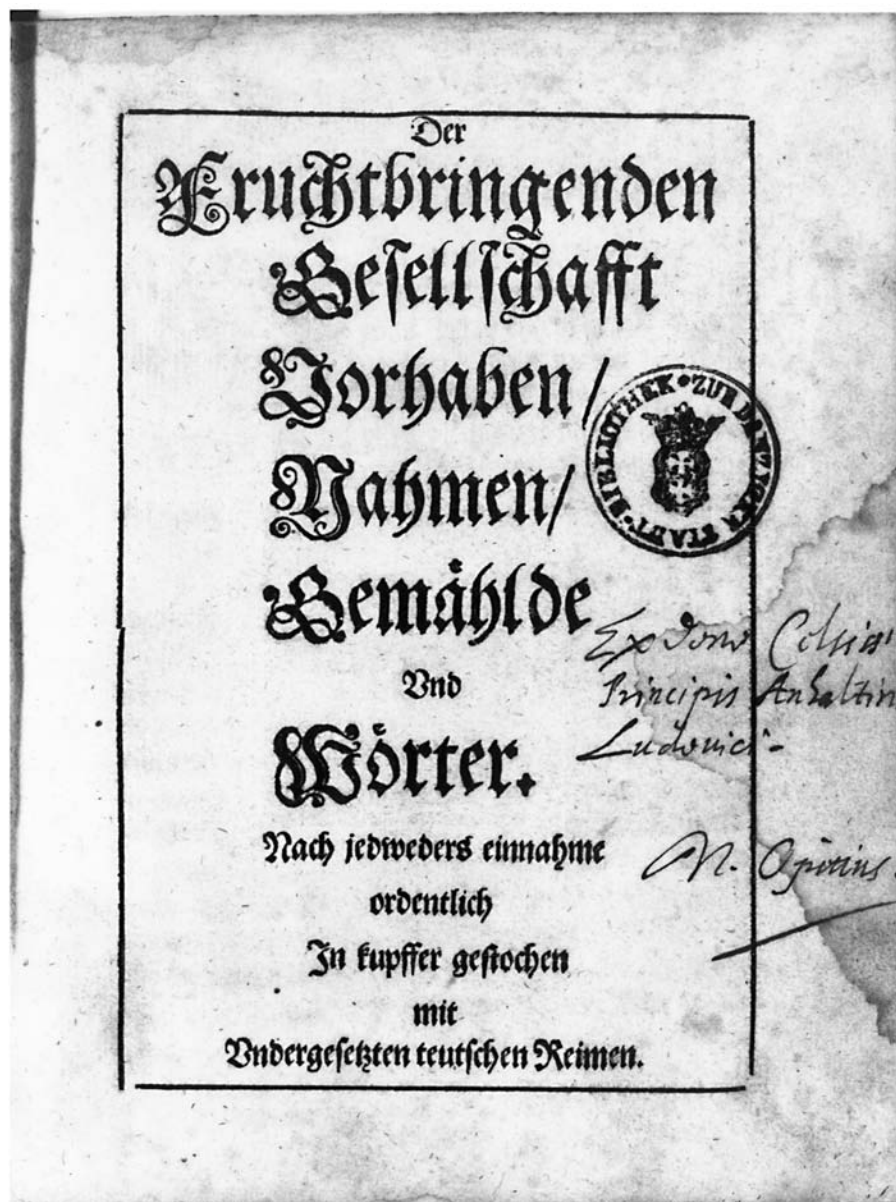 Der
Fruchtbringenden
Gesellschafft
Vorhaben/
Nahmen/
Gemählde
Vnd
Wörter.
Nach jedweders einnahme
ordentlich
In kupffer gestochen
mit
Vndergesetzten teutschen Reimen.
BIBLIOTHEK • ZUR DANZIGER STADT •
Ex dono
Principis Anhaltin
Ludovici.
M. Opitius.